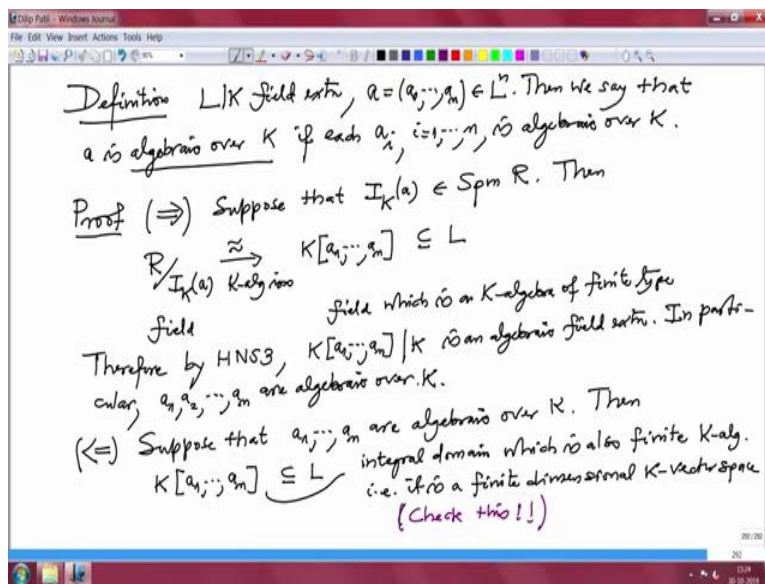 Dilip Patil - Windows Journal
File Edit View Insert Actions Tools Help
Definition L|K field extn, a=(a₁,...,aₙ) ∈ Lⁿ. Then we say that
a is algebraic over K if each aᵢ, i=1,...,n, is algebraic over K.
Proof (⇒) Suppose that I_K(a) ∈ Spm R. Then
R/I_K(a) ≈→ K-alg iso K[a₁,...,aₙ] ⊆ L
field which is an K-algebra of finite type
field
Therefore by HNS3, K[a₁,...,aₙ]|K is an algebraic field extn. In parti-
cular, a₁,a₂,...,aₙ are algebraic over K.
(<=) Suppose that a₁,...,aₙ are algebraic over K. Then
K[a₁,...,aₙ] ⊆ L integral domain which is also finite K-alg.
i.e. it is a finite dimensional K-vector space
(Check this!!)
292/292
292
15:24
30-10-2019